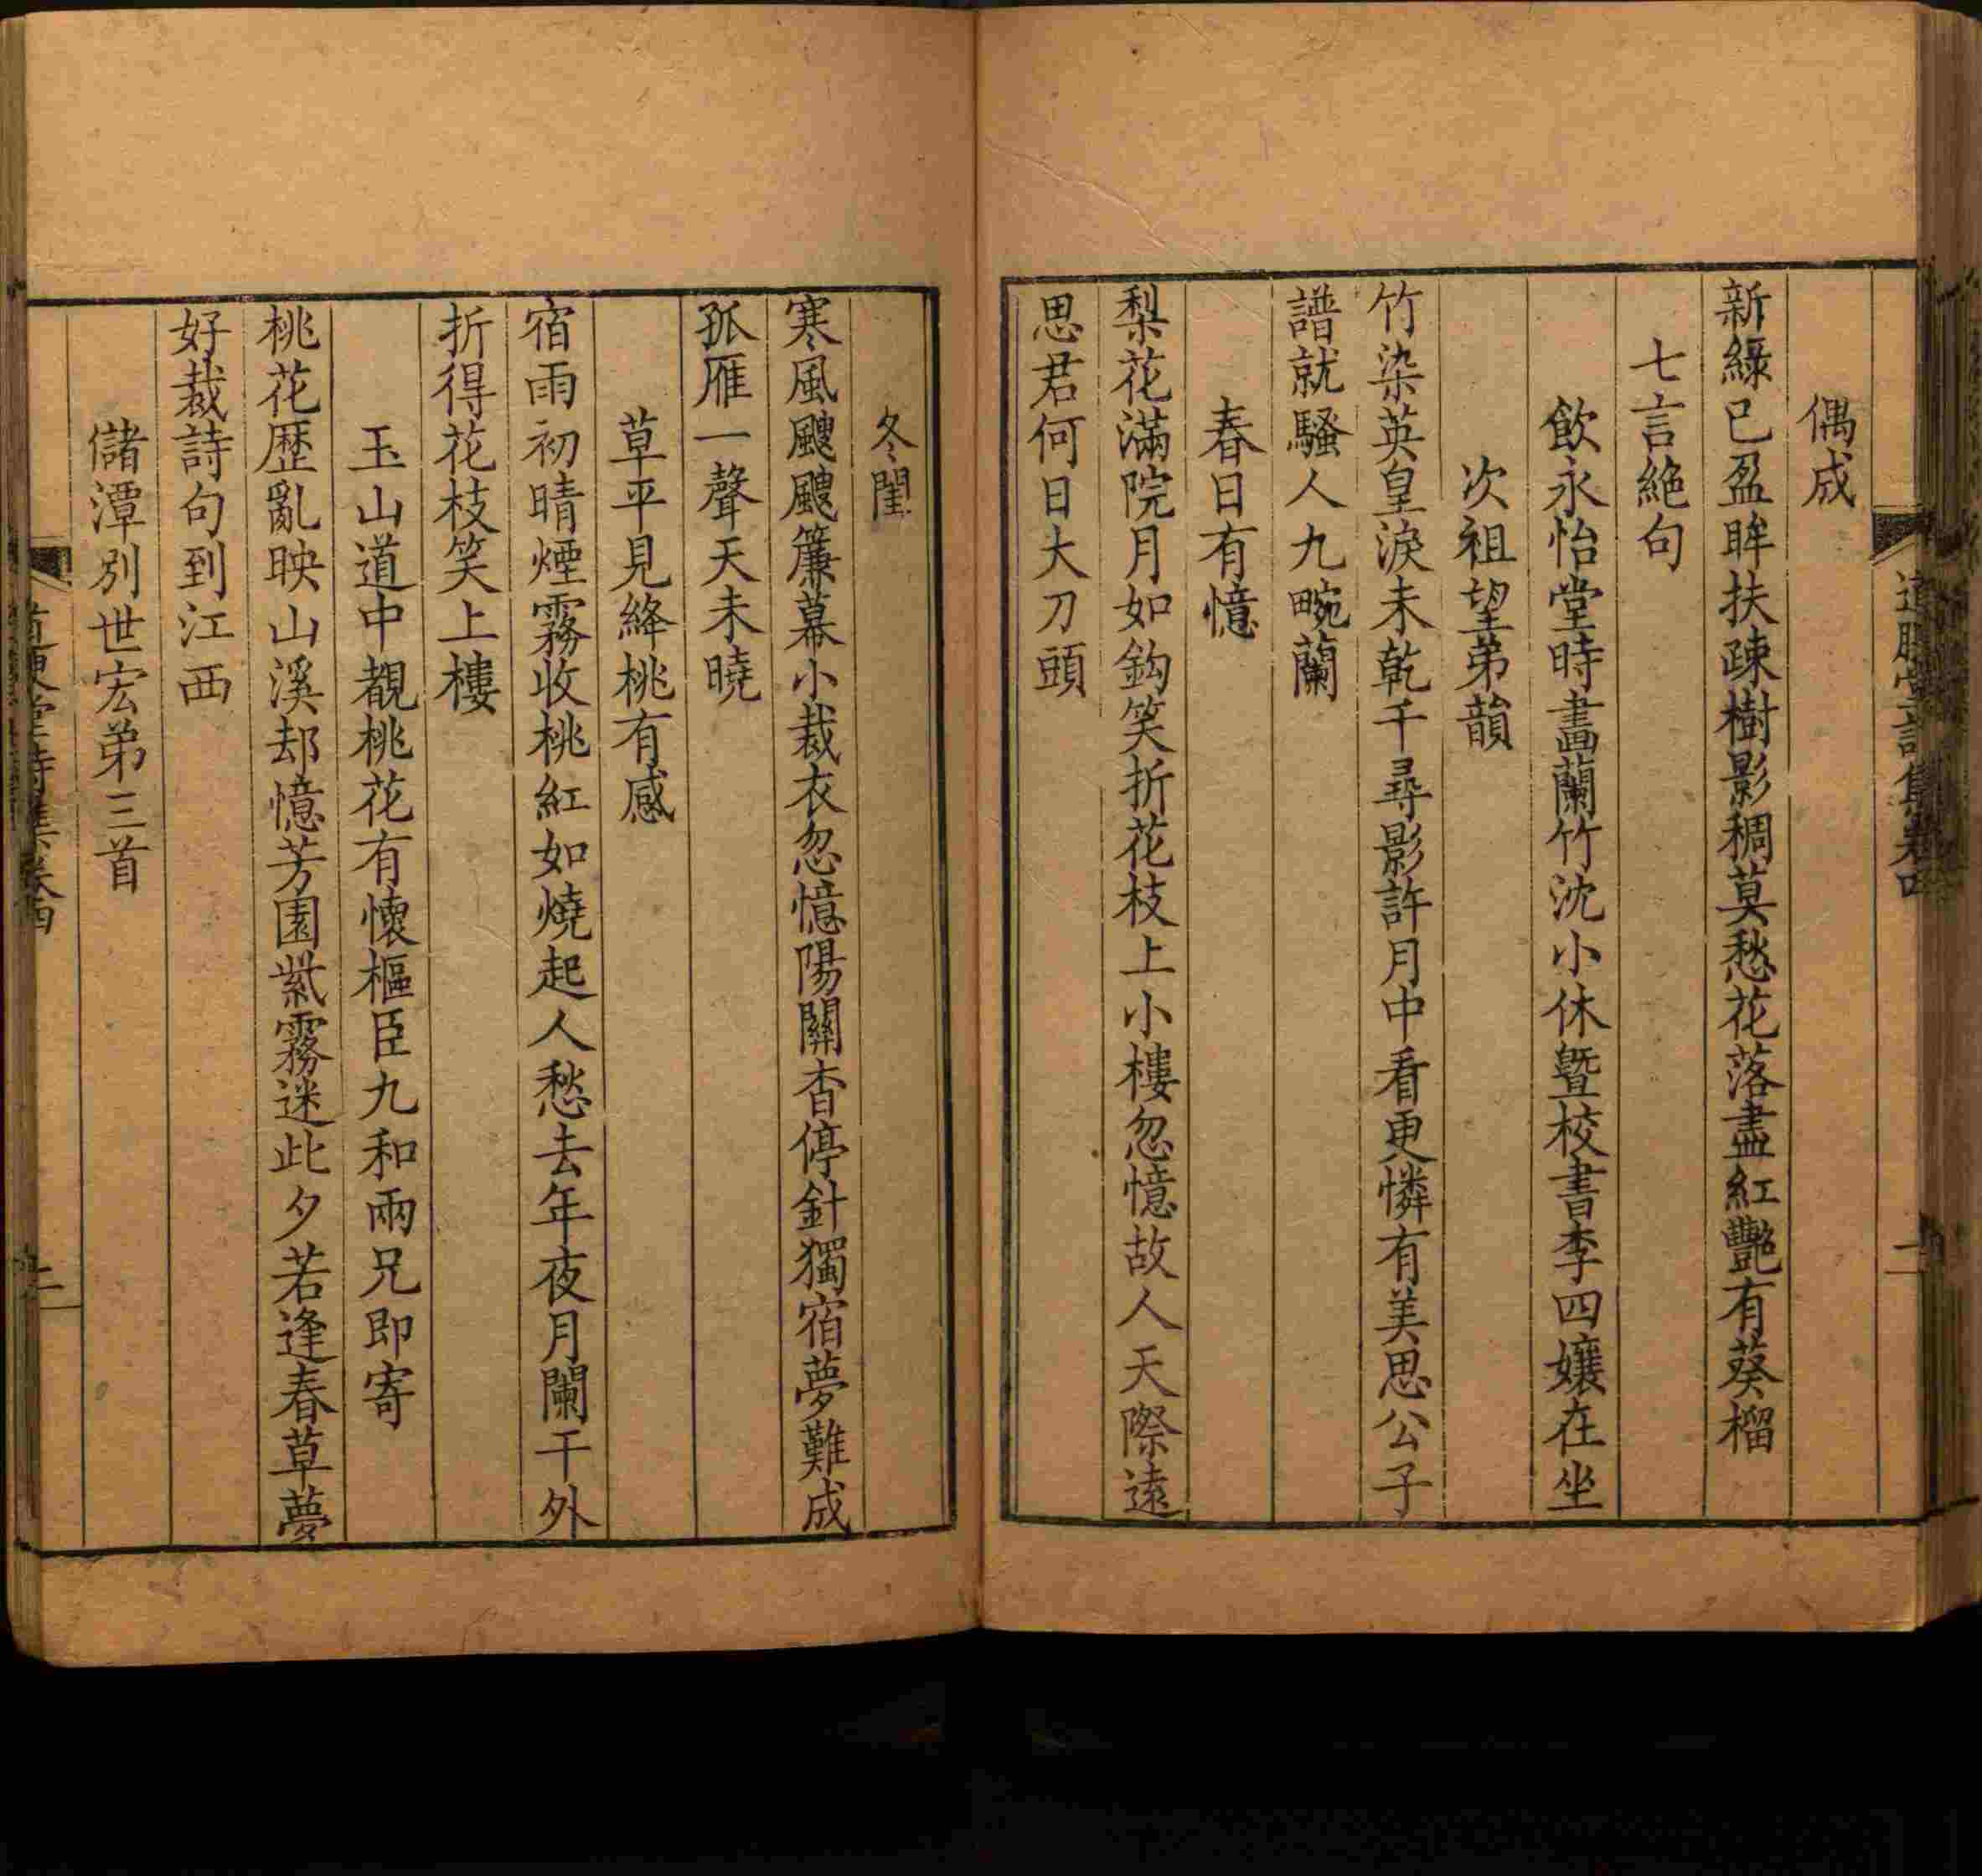 偶成
新綠已盈眸扶疎樹影稠莫愁花落盡紅豔有葵榴
七言絶句
飲永怡堂時畵蘭竹沈小休曁校書李四孃在坐
次祖望弟韻
竹染英皇淚未乾千尋影許月中看更憐有美思公子
譜就騷人九畹蘭
春日有憶
梨花滿院月如鈎笑折花枝上小樓忽憶故人天際遠
思君何日大刀頭
冬閨
寒風颼颼簾幕小裁衣忽憶陽關杳停針獨宿夢難成
孤雁一聲天未曉
草平見絳桃有感
宿雨初晴煙霧收桃紅如燒起人愁去年夜月闌干外
折得花枝笑上樓
玉山道中覩桃花有懷樞臣九和兩兄即寄
桃花歷亂映山溪却憶芳園紫霧迷此夕若逢春草夢
好裁詩句到江西
儲潭別世宏弟三首